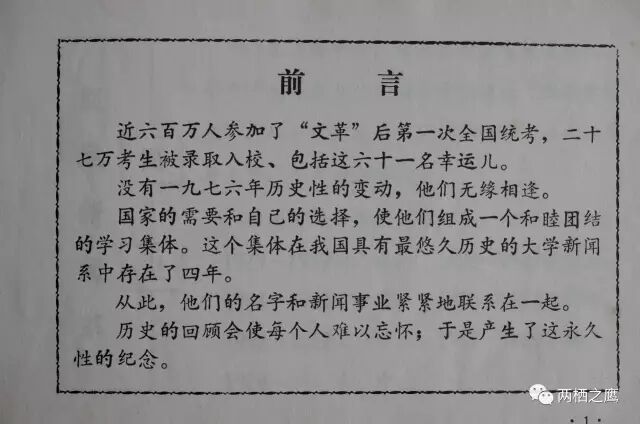 前 言
近六百万人参加了“文革”后第一次全国统考，二十
七万考生被录取入校、包括这六十一名幸运儿。
没有一九七六年历史性的变动，他们无缘相逢。
国家的需要和自己的选择，使他们组成一个和睦团结
的学习集体。这个集体在我国具有最悠久历史的大学新闻
系中存在了四年。
从此，他们的名字和新闻事业紧紧地联系在一起。
历史的回顾会使每个人难以忘怀；于是产生了这永久
性的纪念。
两栖之鹰
·1·